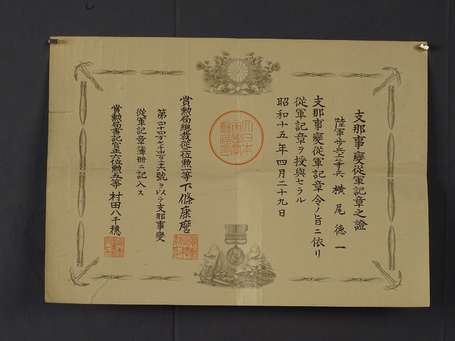 支那事變從軍記章之證
陸軍歩兵二等兵 横尾德一
支那事變從軍記章令ノ旨ニ依リ
從軍記章ヲ授與セラル
昭和十五年四月二十九日
賞勲局總裁從四位勲二等下條康麿
號ヲ以テ支那事變
從軍記章簿冊ニ記入ス
賞勲局書記官正六位勲五等村田八千穂